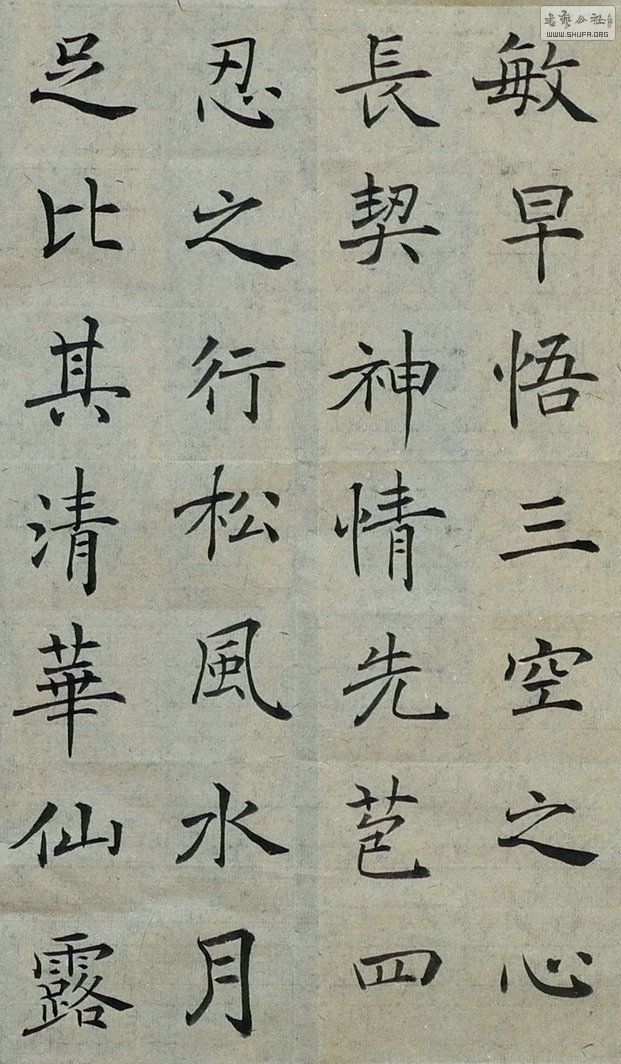 敏早悟三空之心
長契神情先苞四
忍之行松風水月
足比其清華仙露
WWW.SHUFA.ORG